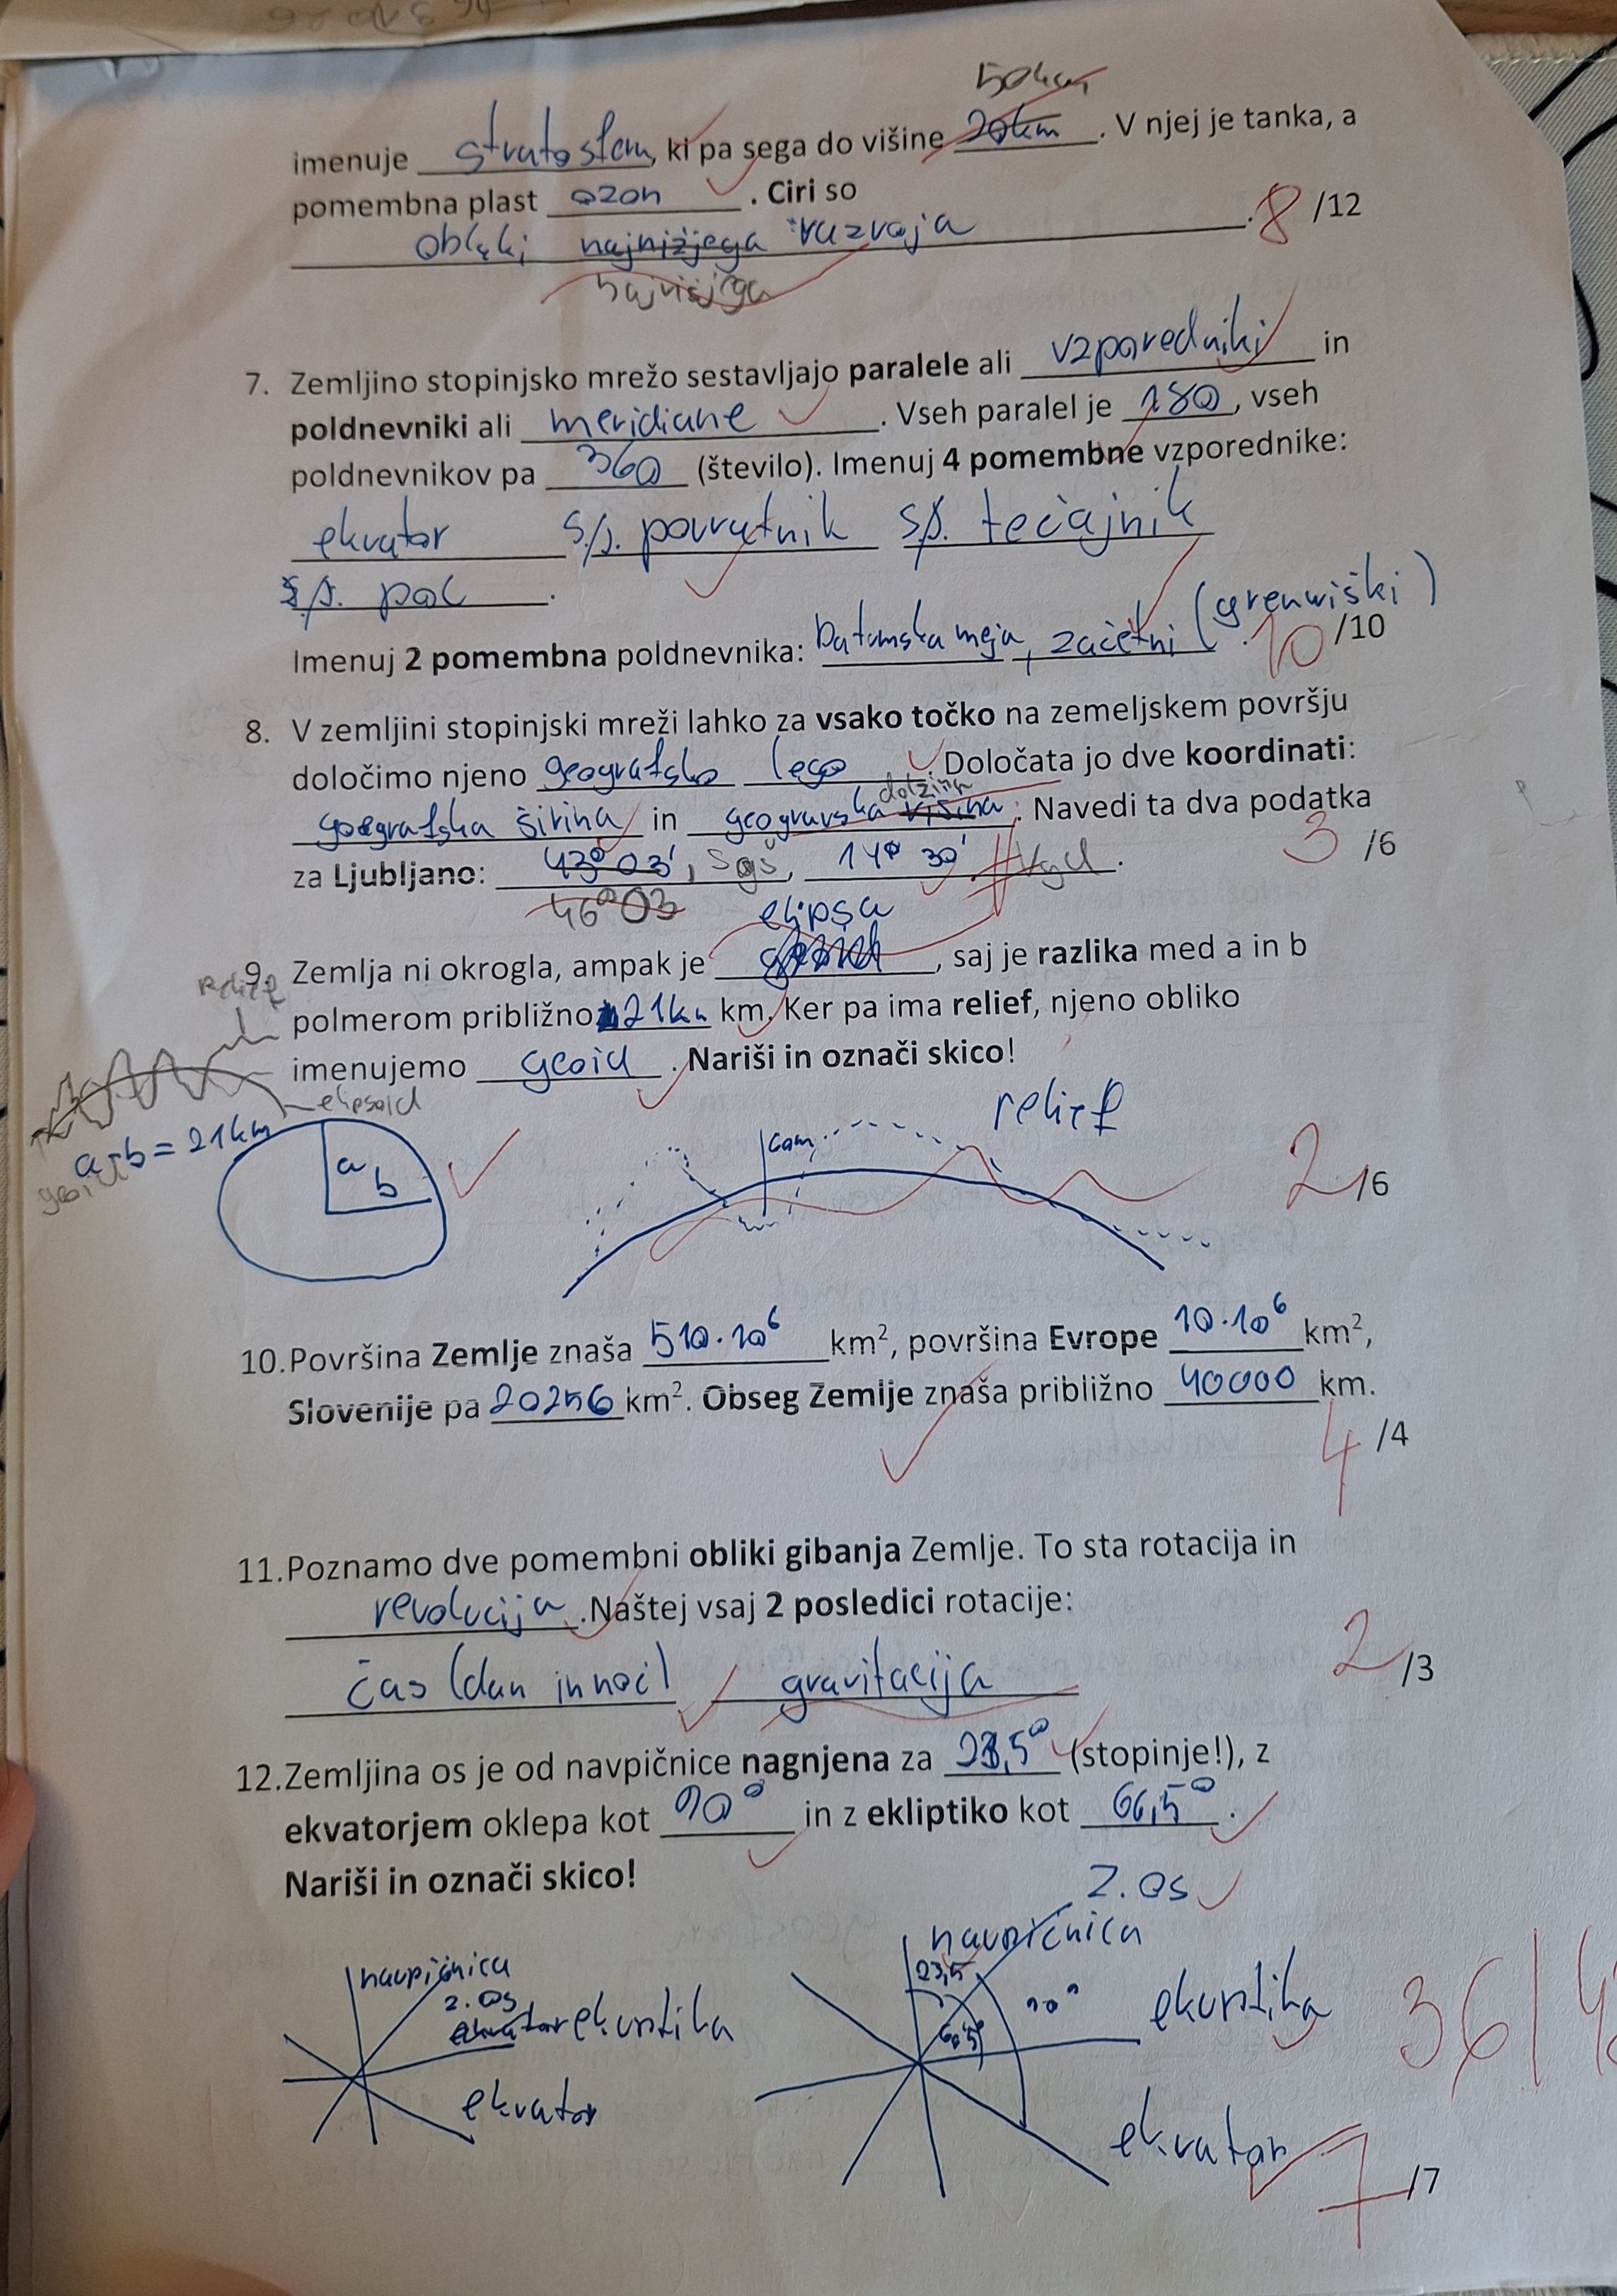 50km
imenuje stratosfera, ki pa sega do višine 20km. V njej je tanka, a
pomembna plast ozon. Ciri so
oblaki najnižjega razvoja. 8 /12
najvišjega
7. Zemljino stopinjsko mrežo sestavljajo paralele ali vzporedniki in
poldnevniki ali meridiane. Vseh paralel je 180, vseh
poldnevnikov pa 360 (število). Imenuj 4 pomembne vzporednike:
ekvator s./j. povratnik s/j. tečajnik
s/j. pol.
Imenuj 2 pomembna poldnevnika: Datumska meja, začetni (grenwiški). 10 /10
8. V zemljini stopinjski mreži lahko za vsako točko na zemeljskem površju
določimo njeno geografsko lego. Določata jo dve koordinati:
dolžina
geografska širina in geogravska višina. Navedi ta dva podatka
za Ljubljano: 43° 03', sgš, 14° 30' vgd. 3 /6
46° 03
elipsa
9. Zemlja ni okrogla, ampak je geoid, saj je razlika med a in b
relief
polmerom približno 21km km. Ker pa ima relief, njeno obliko
imenujemo geoid. Nariši in označi skico!
elipsoid
relief
a-b = 21km
geoid
a
b
2 /6
10. Površina Zemlje znaša 510·10⁶ km², površina Evrope 10·10⁶ km²,
Slovenije pa 20256 km². Obseg Zemlje znaša približno 40000 km.
4 /4
11. Poznamo dve pomembni obliki gibanja Zemlje. To sta rotacija in
revolucija. Naštej vsaj 2 posledici rotacije:
čas (dan in noč) gravitacija 2 /3
12. Zemljina os je od navpičnice nagnjena za 23,5° (stopinje!), z
ekvatorjem oklepa kot 90° in z ekliptiko kot 66,5°.
Nariši in označi skico!
Z. os
navpičnica
navpičnica
23,5
z. os
90°
ekvator ekuptika
ekuptika
66,5°
36/4
ekvator
ekvator
7 /7